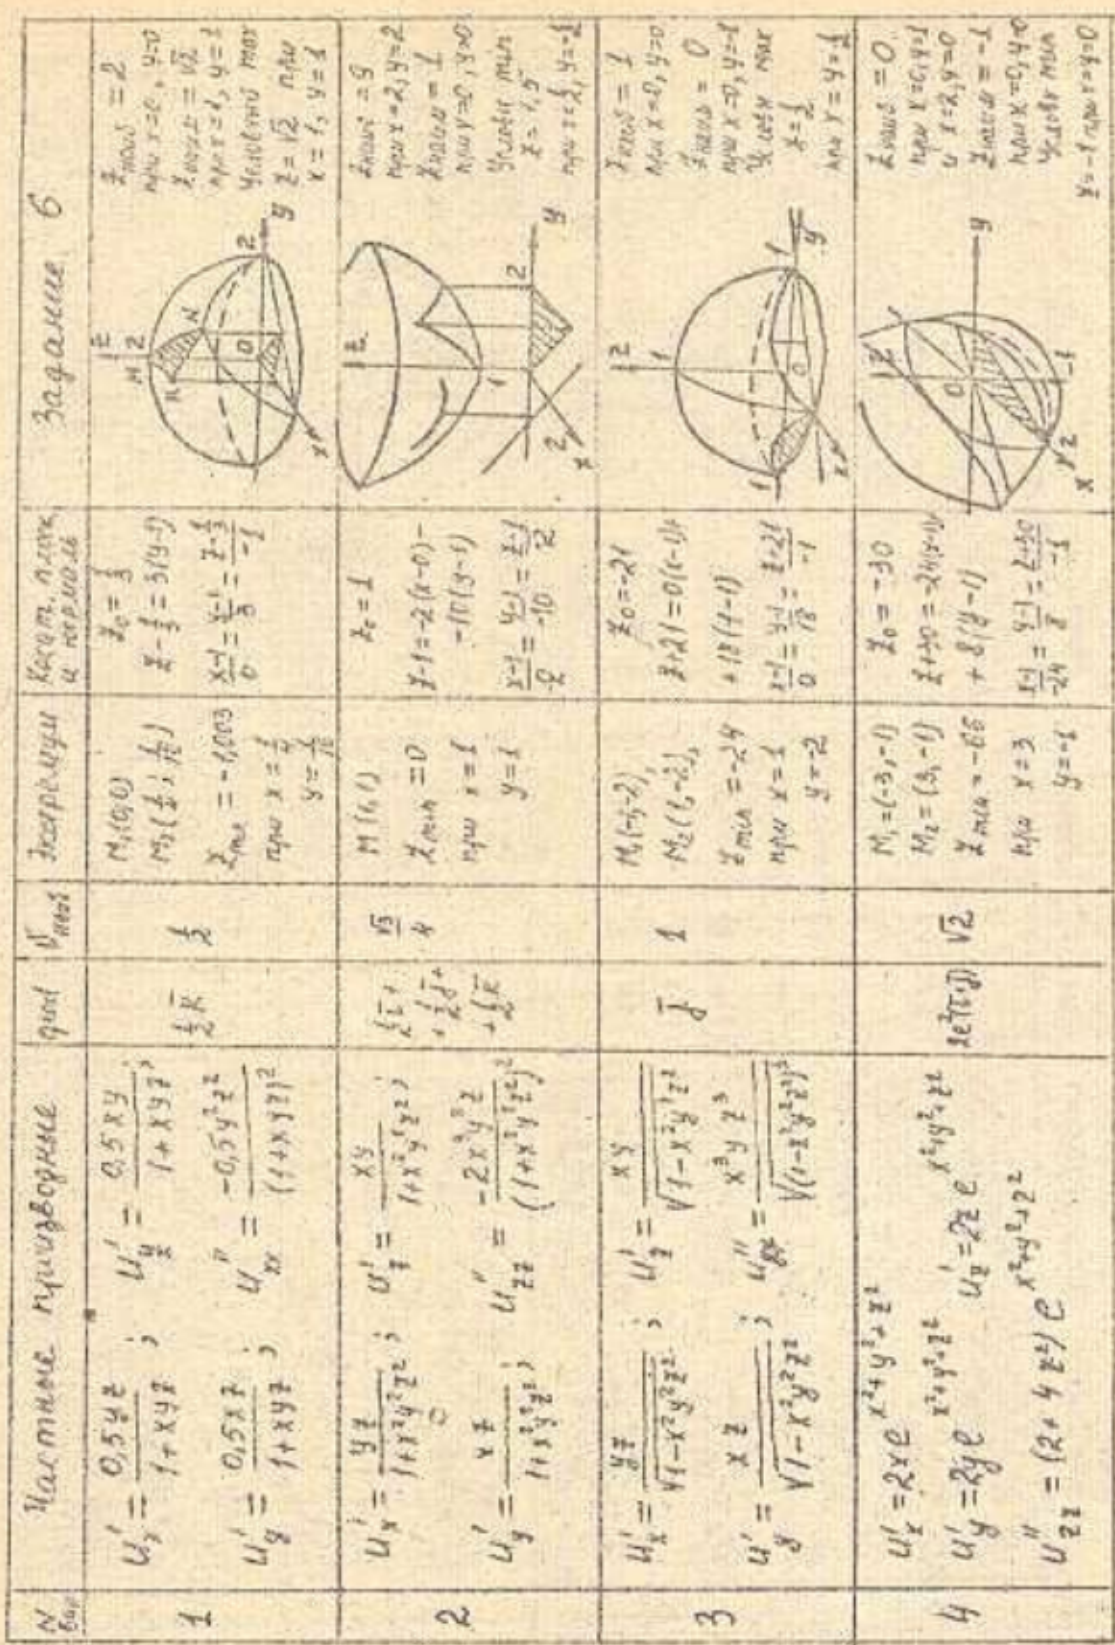 N вар
Частные производные
grad
Vнаиб
Экстремум
Касат. плоск. и нормаль
Задание 6
1
U'x = 0,5yz / (1+xyz) ;
U'z = 0,5xy / (1+xyz) ;
U'y = 0,5xz / (1+xyz) ;
U''xx = -0,5y²z² / (1+xyz)²
½ k̄
½
M₁(0,0)
Zmin = -1,003
при x = ¼
y = 1/16
z₀ = 1/3
z - 1/3 = 3(y-1)
(x-1)/0 = (y-1)/3 = (z-1/3)/-1
z
M 2
N
K
O
2 y
x
Zнаиб = 2
при x=0, y=0
Zнаим = √2
при x=1, y=1
Условный max
z = √2 при
x = 1, y = 1
2
U'x = yz / (1+x²y²z²) ;
U'z = xy / (1+x²y²z²) ;
U'y = xz / (1+x²y²z²) ;
U''zz = -2x³y³z / (1+x²y²z²)²
½ ī +
+ ½ j̄ +
+ ½ k̄
√3/4
M(1,1)
Zmin = 0
при x = 1
y = 1
z₀ = 1
z-1 = -2(x-0) -
-10(y-1)
(x-1)/-2 = (y-1)/-10 = (z-1)/-2
z
1
2
2
x
y
Zнаиб = 9
при x=2, y=2
Zнаим = 1
при x=0, y=0
Условн min
z = 1,5
при x=½, y=-½
3
U'x = yz / √(1-x²y²z²) ;
U'z = xy / √(1-x²y²z²)
U'y = xz / √(1-x²y²z²) ;
U''xx = x³yz³ / √(1-x²y²z²)³
j̄
1
M₁(-1,-2),
M₂(1,-2),
Zmin = -24
при x = 1
y = -2
z₀ = -21
z+21 = 0(x-1)+
+18(y-1)
(x-1)/0 = (y-1)/18 = (z+21)/-1
z
1
1
O
1
y
x
Zнаиб = 1
при x=0, y=0
Zнаим = 0
при x=0, y=1
Условн max
z = ½
при x = y = ½
4
U'x = 2x e^(x²+y²+z²)
U'y = 2y e^(x²+y²+z²)
U'z = 2z e^(x²+y²+z²)
U''zz = (2+4z²) e^(x²+y²+z²)
2e²(ī+j̄)
√2
M₁=(-3,-1)
M₂=(3,-1)
Zmin = -66
при x=3
y=-1
z₀ = -30
z+30 = -24(x-1)+
+8(y-1)
(x-1)/-24 = (y-1)/8 = (z+30)/-1
z
O
y
-1
2
x
Zнаиб = 0
при x=0, y=1
и x=2, y=0
Zнаим = -1
при x=0, y=0
Условн min
z = -1 при x=y=0